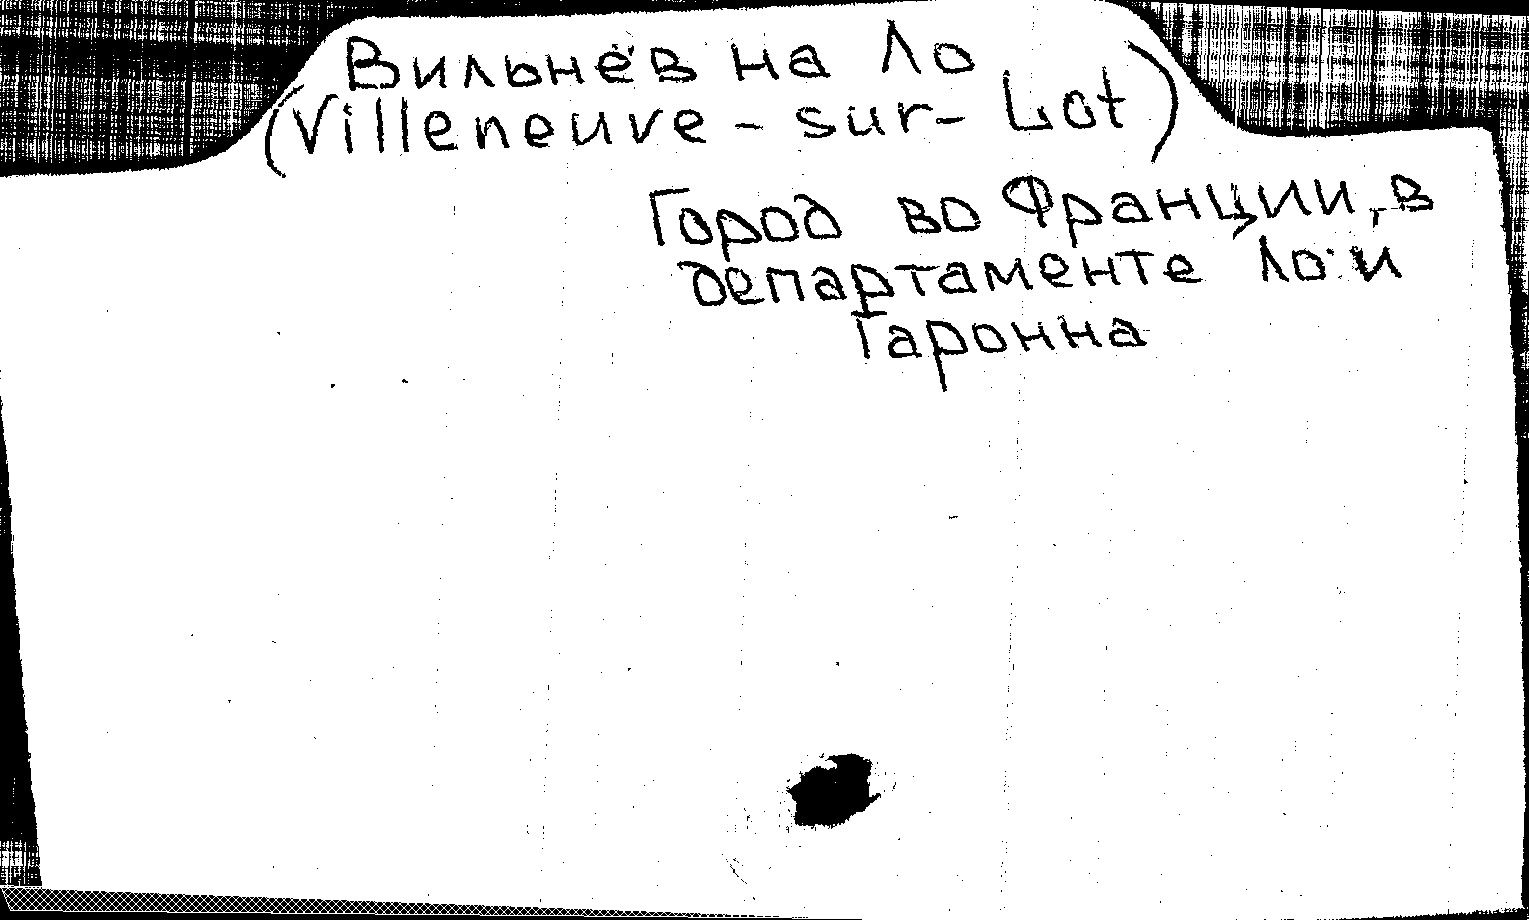 Вильнёв на Ло
(Villeneuve-sur-Lot)
Город во Франции, в
департаменте Ло и
Гаронна